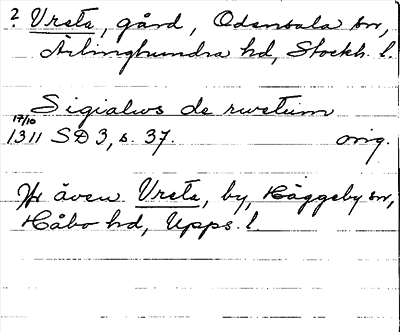 ? Vrsta, gård, Odensala sn,
Ärlinghundra hd, Stockh. l.
Sigialws de rwstum
17/10
1311 SD 3, s. 37. orig.
Jfr även Vrsta, by, Häggeby sn,
Håbo hd, Upps. l.